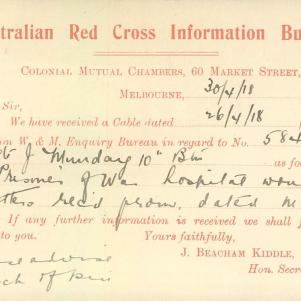 tralian Red Cross Information Bu
Colonial Mutual Chambers, 60 Market Street,
Melbourne, 30/4/18
Sir,
We have received a Cable dated 26/4/18
om W. & M. Enquiry Bureau in regard to No. 584
J Munday 10" Bn
as fo
Prisoner of War hospital wou
read prom. dated M
If any further information is received we shall f
to you.
Yours faithfully,
J. BEACHAM KIDDLE,
Hon. Secre
advise
of